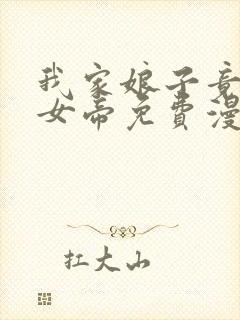 我家娘子竟
女帝免費漫
扛大山